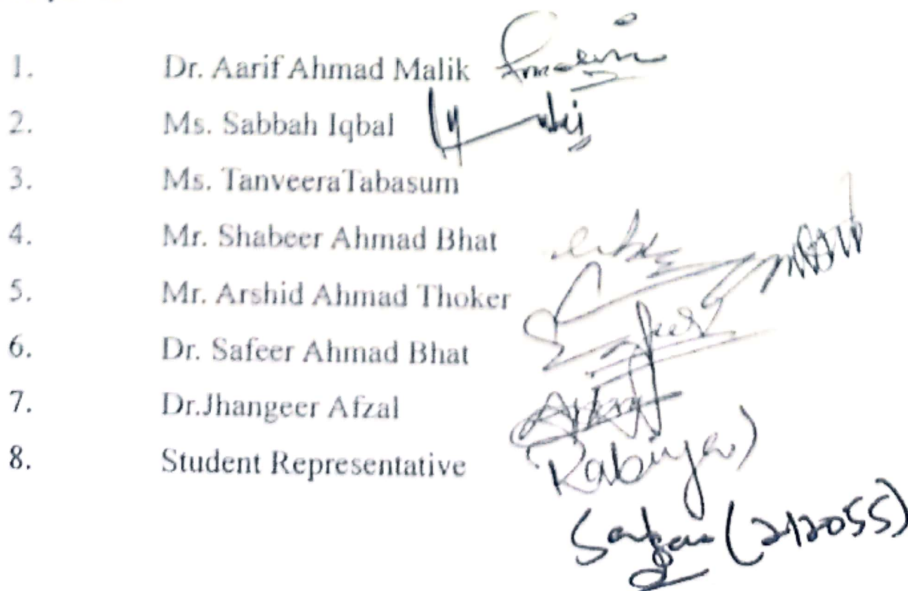 1. Dr. Aarif Ahmad Malik
2. Ms. Sabbah Iqbal
3. Ms. TanveeraTabasum
4. Mr. Shabeer Ahmad Bhat
5. Mr. Arshid Ahmad Thoker
6. Dr. Safeer Ahmad Bhat
7. Dr.Jhangeer Afzal
8. Student Representative
Rabiya)
(212055)